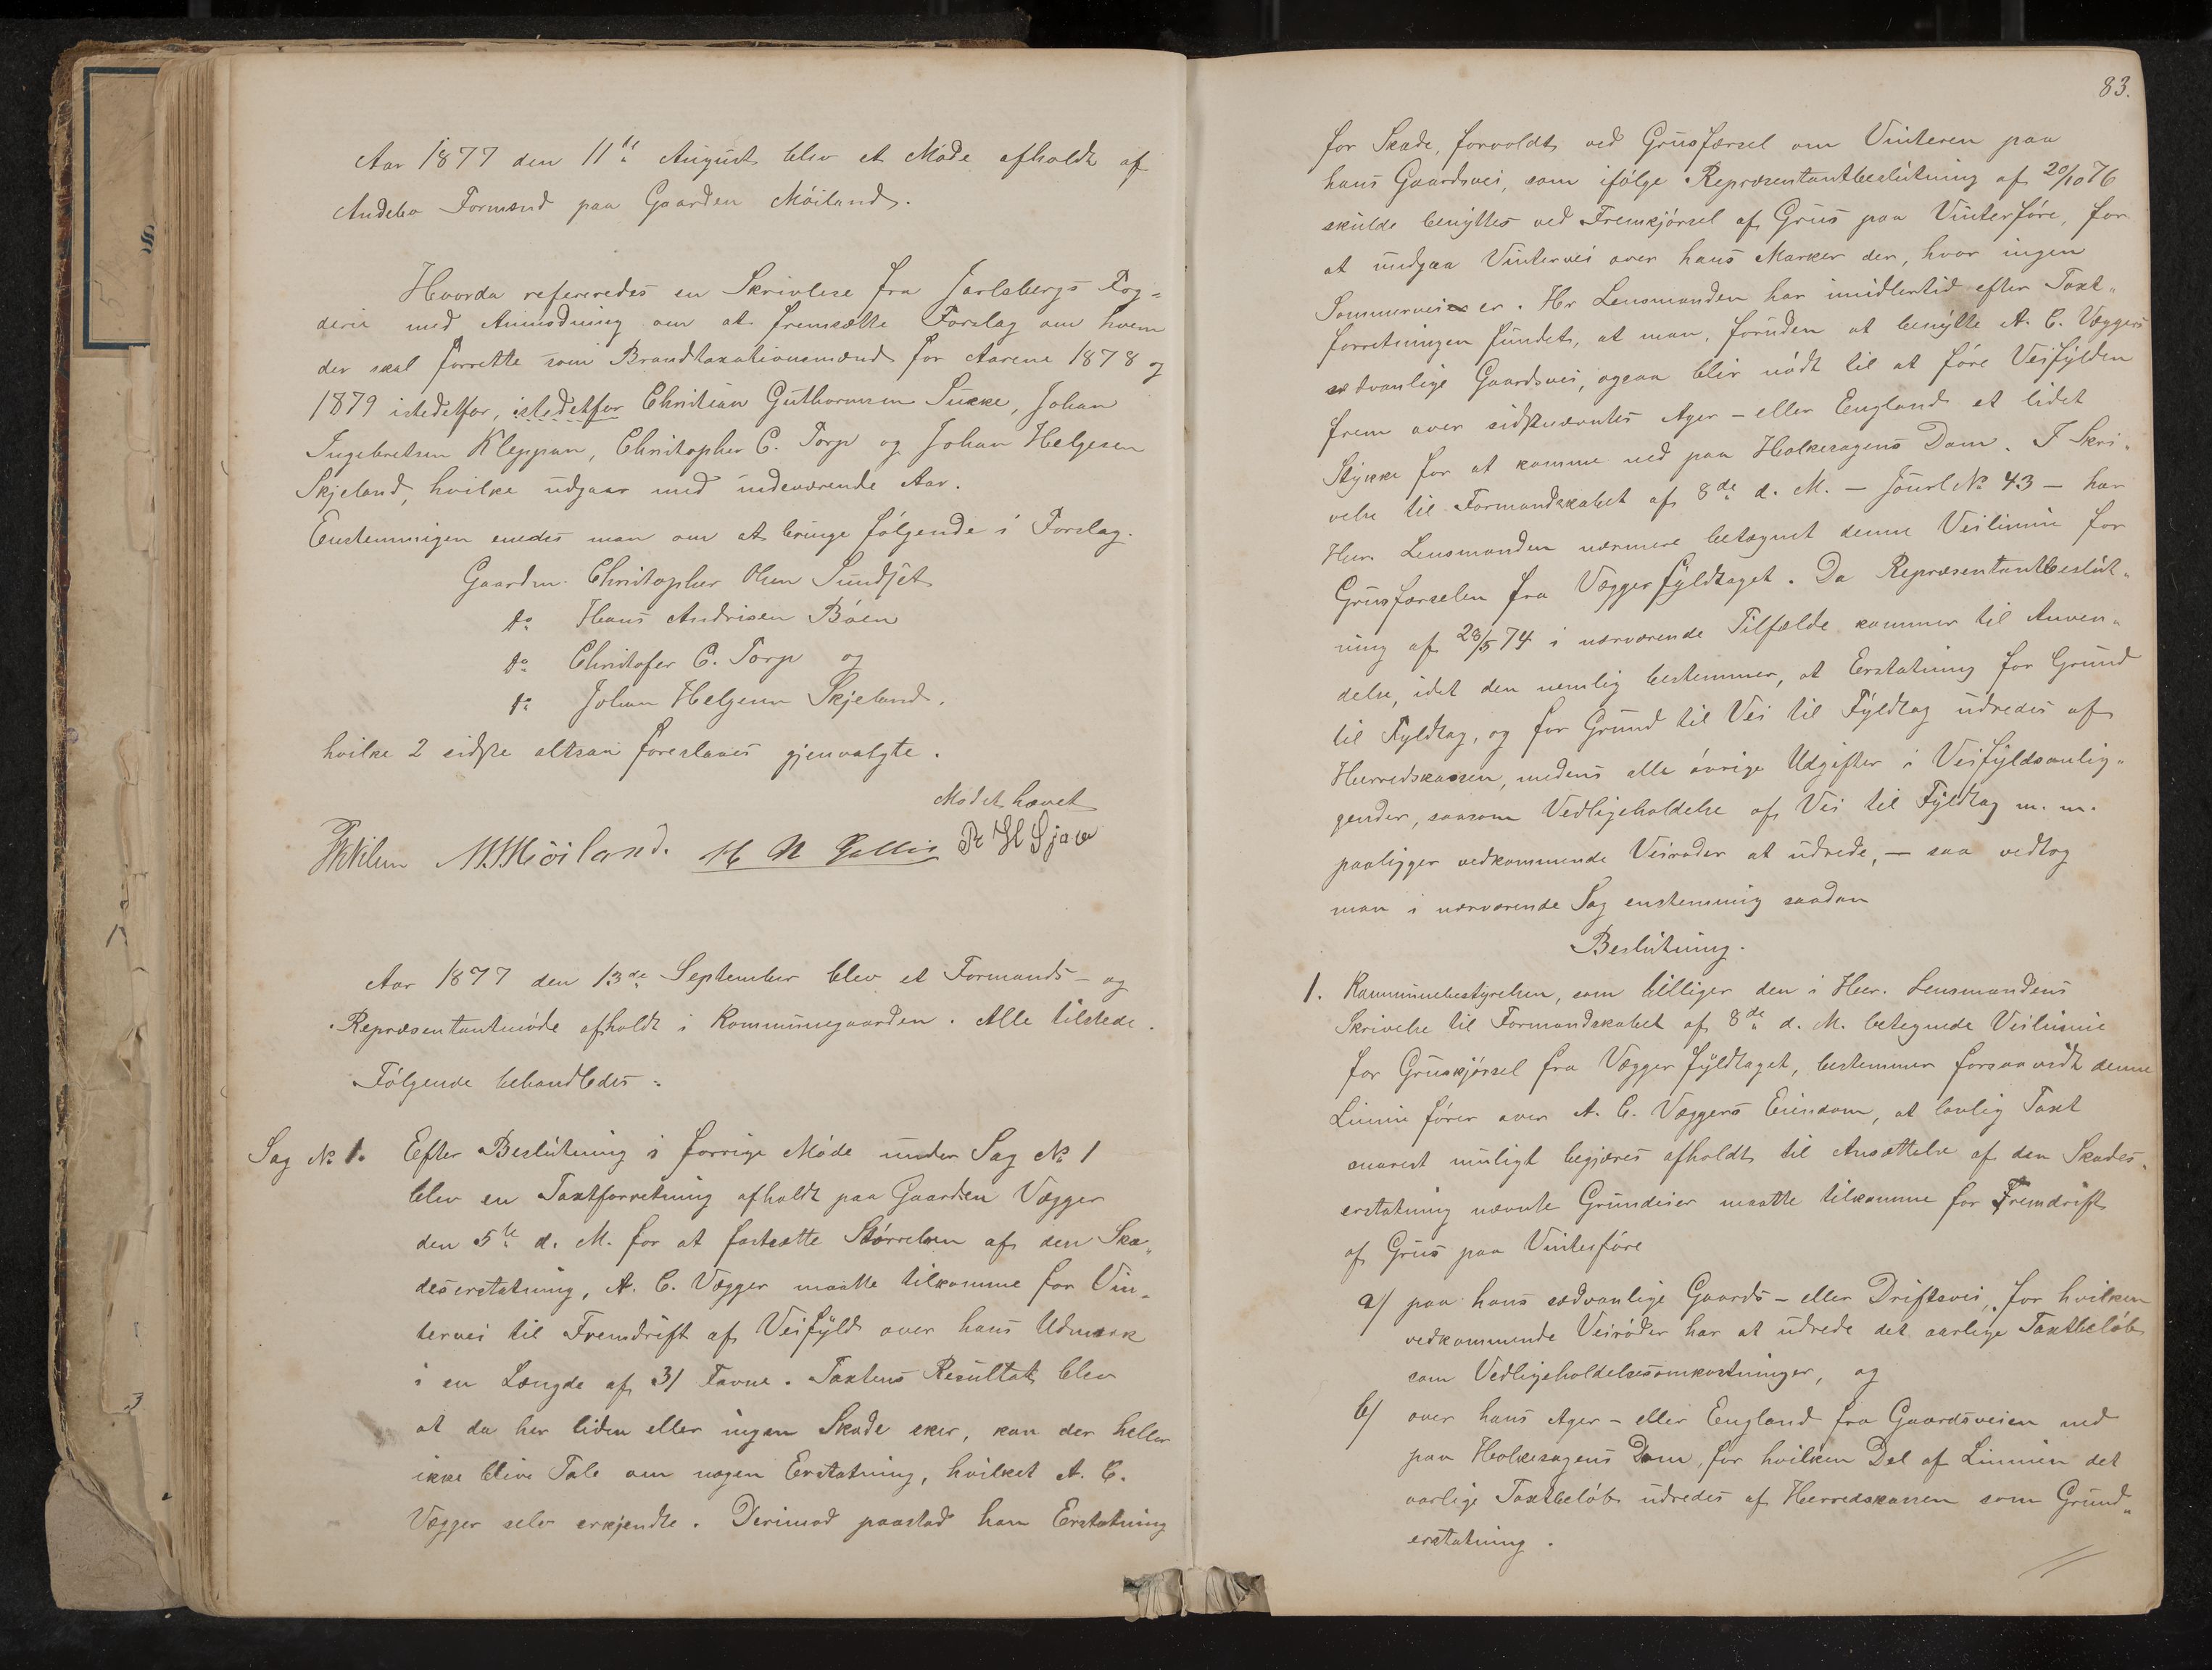 Aar 1877 den 11te August blev et Møde afholdt af
Andebo Formænd paa Gaarden Møiland.
Hvorda refereredes en Skrivlese fra Jarlsbergs Fog-
derie med Anmodning om at fremsætte Forslag om hvem
der skal forrette som Brandtaxationsmænd for Aarene 1878 og
1879 istedetfor, istedetfor Christian Guthormsen Sukke, Johan
Ingebretsen Kleppan, Christopher C. Torp og Johan Helgesen
Skjeland, hvilke udgaar med indeværende Aar.
Enstemmigen enedes man om at bringe følgende i Forslag.
Gaardm. Christopher Olsen Sundset
do Hans Andrisen Bøen
do Christofer C. Torp og
do Johan Helgesen Skjeland.
hvilke 2 sidste altsaa foreslaaes gjenvalgte.
Mødet hævet
M. Møiland. H N Gallis P H Sjue
Aar 1877 den 13de September blev et Formands- og
Repræsentantmøde afholdt i Kommunegaarden. Alle tilstede.
Følgende behandledes:
Sag No 1. Efter Beslutning i forrige Møde under Sag No 1
blev en Taxtforretning afholdt paa Gaarden Vægger
den 5te d. M. for at fastsætte Størrelsen af den Ska„
deserstatning, A. C. Vægger maatte tilkomme for Vin„
tervei til Fremdrift af Veifyld over hans Udmark
i en Længde af 31 Favne. Taxtens Resultat blev
at da her liden eller ingen Skade sker, kan der heller
ikke blive Tale om nogen Erstatning, hvilket A. C.
Vægger selv erkjendte. Derimod paastod han Erstatning
83.
for Skade, forvoldt ved Grusførsel om Vinteren paa
hans Gaardsvei, som ifølge Repræsentantbeslutning af 20/10 76
skulde benyttes ved Fremkjørsel af Grus paa Vinterføre, for
at undgaa Vintervei over hans Marker der, hvor ingen
Sommervei er. Hr Lensmanden har imidlertid efter Taxt„
forretningen fundet, at man, foruden at benytte A. C. Væggers
sædvanlige Gaardsvei, ogsaa blir nødt til at føre Veifylden
frem over sidstnævntes Ager- eller Englands et lidet
Stykke for at komme ned paa Holkesagens Dam. I Skri„
velse til Formandskabet af 8de d. M. – Jourl No 43 – har
Herr Lensmanden nærmere betegnet denne Veilinnie for
Grusførselen fra Vægger fyldtaget. Da Repræsentantbeslut„
ning af 28/5 74 i nærværende Tilfælde kommer til Anven„
delse, idet den nemlig bestemmer, at Erstatning for Grund
til Fyldtag, og for Grund til Vei til Fyldtag udredes af
Herredskassen, medens alle øvrige Udgifter i Veifyldsanlig„
gender, saasom Vedligeholdelse af Vei til Fyldtag m. m.
paaligger vedkommende Veiroder at udrede, – saa vedtog
man i nærværende Sag enstemmig saadan
Beslutning.
1. Kommunebestyrelsen, som billiger den i Herr. Lensmandens
Skrivelse til Formandskabet af 8de d. M. betegnede Veilinnie
for Gruskjørsel fra Vægger fyldtaget, bestemmer forsaavidt denne
Linnie fører over A. C. Væggers Eiendom, at lovlig Taxt
snarest muligt begjæres afholdt til Ansættelse af den Skades„
erstatning nævnte Grundeier maatte tilkomme for Fremdrift
af Grus paa Vinterføre
a/ paa hans sædvanlige Gaards- eller Driftsvei, for hvilken
vedkommende Veiroder har at udrede det aarlige Taxtbeløb
som Vedligeholdelsesomkostninger, og
b/ over hans Ager- eller England fra Gaardsveien ned
paa Holkesagens Dam, for hvilken Del af Linnien det
aarlige Taxtbeløb udredes af Herredskassen som Grund„
erstatning.